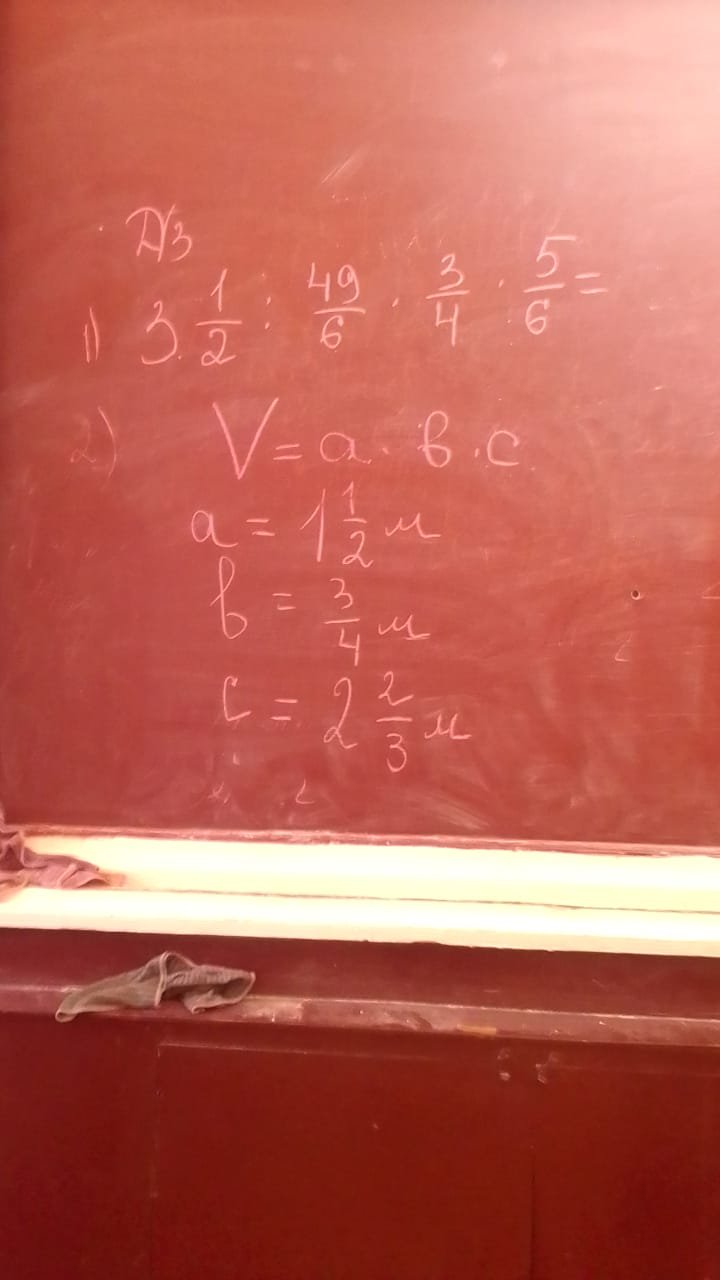 Д/З
1) 3 1/2 : 49/6 · 3/4 · 5/6 =
2) V = a · b · c
a = 1 1/2 м
b = 3/4 м
c = 2 2/3 м